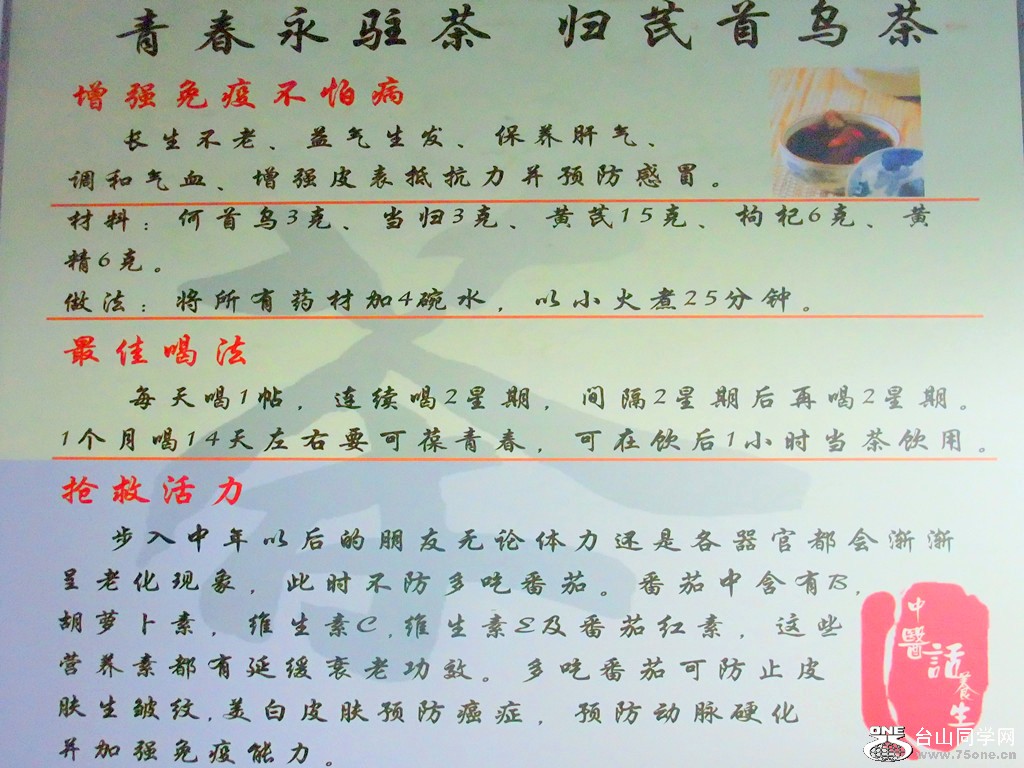 青春永驻茶 归芪首乌茶
增强免疫不怕病
长生不老、益气生发、保养肝气、
调和气血、增强皮表抵抗力并预防感冒。
材料：何首乌3克、当归3克、黄芪15克、枸杞6克、黄
精6克。
做法：将所有药材加4碗水，以小火煮25分钟。
最佳喝法
每天喝1帖，连续喝2星期，间隔2星期后再喝2星期。
1个月喝14天左右要可葆青春，可在饮后1小时当茶饮用。
抢救活力
步入中年以后的朋友无论体力还是各器官都会渐渐
呈老化现象，此时不防多吃番茄。番茄中含有B,
胡萝卜素，维生素C,维生素E及番茄红素，这些
营养素都有延缓衰老功效。多吃番茄可防止皮
肤生皱纹,美白皮肤预防癌症，预防动脉硬化
并加强免疫能力。
中醫話養生
ONE 75 台山同学网
www.75one.cn